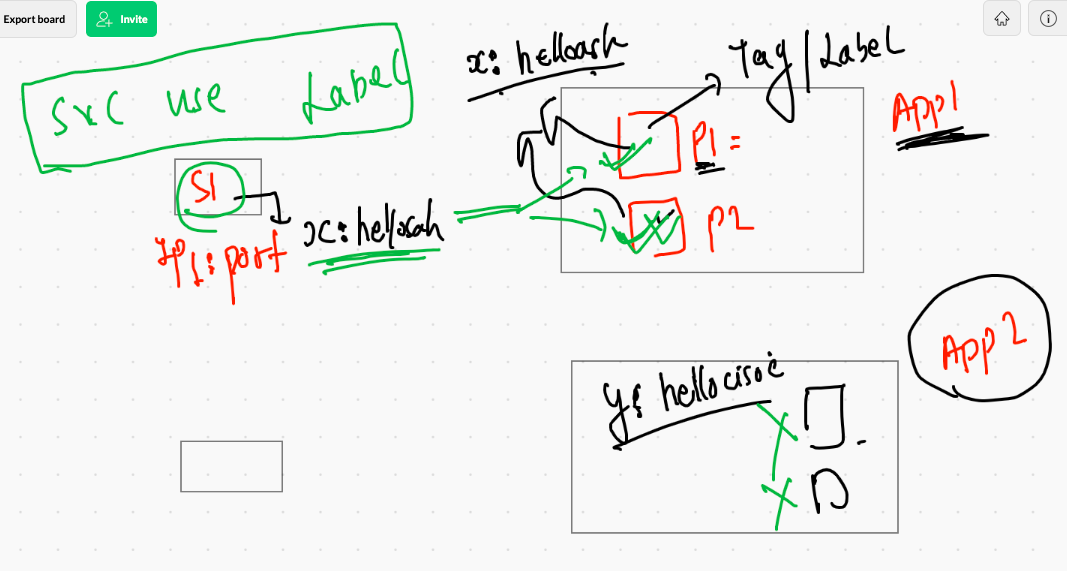 Export board
Invite
SVC use Label
x: helloash
Tag/Label
App1
P1 =
S1
x: helloash
IP: port
P2
App2
y: hellocisco